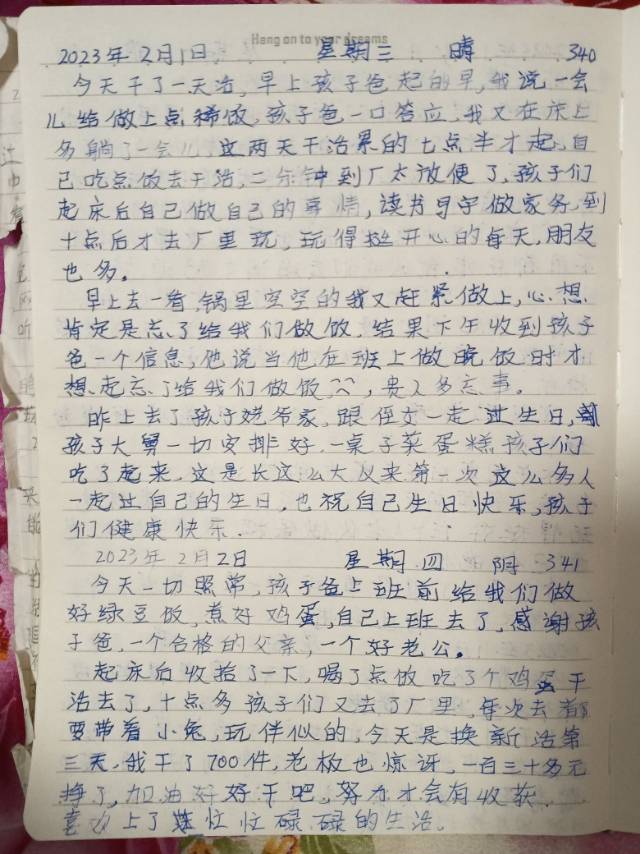 Hang on to your dreams
2023年2月1日 星期三 晴 340
今天干了一天活,早上孩子爸起的早,我说一会
儿给做上点稀饭,孩子爸一口答应,我又在床上
多躺了一会儿,这两天干活累的七点半才起,自
己吃点饭去干活,二分钟到厂太方便了,孩子们
起床后自己做自己的事情,读书写字做家务,到
十点后才去厂里玩,玩得挺开心的每天,朋友
也多。
早上去一看,锅里空空的我又赶紧做上,心想
肯定是忘了给我们做饭,结果下午收到孩子
爸一个信息,他说当他在班上做晚饭时才
想起忘了给我们做饭^^,贵人多忘事。
昨上去了孩子姥爷家,跟侄女一起过生日,
孩子大舅一切安排好,一桌子菜蛋糕孩子们
吃了起来,这是长这么大以来第一次这么多人
一起过自己的生日,也祝自己生日快乐,孩子
们健康快乐.
2023年2月2日 星期四 阴 341
今天一切照常,孩子爸上班前给我们做
好绿豆饭,煮好鸡蛋,自己上班去了,感谢孩
子爸,一个合格的父亲,一个好老公。
起床后收拾了一下,喝了点饭吃了个鸡蛋干
活去了,十点多孩子们又去了厂里,每次去都
要带着小兔,玩伴似的,今天是换新活第
三天,我干了700件,老板也惊讶,一百三十多元
挣了,加油好好干吧,努力才会有收获.
喜欢上了忙忙碌碌的生活.